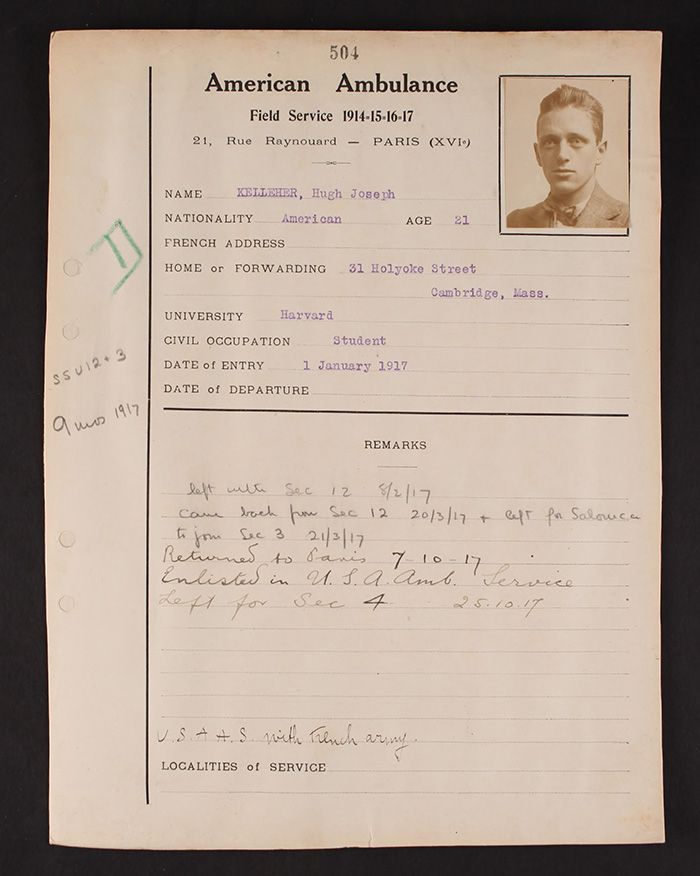 504
American Ambulance
Field Service 1914-15-16-17
21, Rue Raynouard — PARIS (XVIe)
NAME KELLEHER, Hugh Joseph
NATIONALITY American AGE 21
FRENCH ADDRESS
HOME or FORWARDING 31 Holyoke Street
Cambridge, Mass.
UNIVERSITY Harvard
CIVIL OCCUPATION Student
DATE of ENTRY 1 January 1917
DATE of DEPARTURE
SSU 12 + 3
9 mos 1917
REMARKS
left with Sec 12 8/2/17
came back from Sec 12 20/3/17 + left for Salonica
to join Sec 3 21/3/17
Returned to Paris 7-10-17
Enlisted in U.S.A. Amb. Service
Left for Sec 4 25.10.17
U.S.A.A.S. with French army.
LOCALITIES of SERVICE